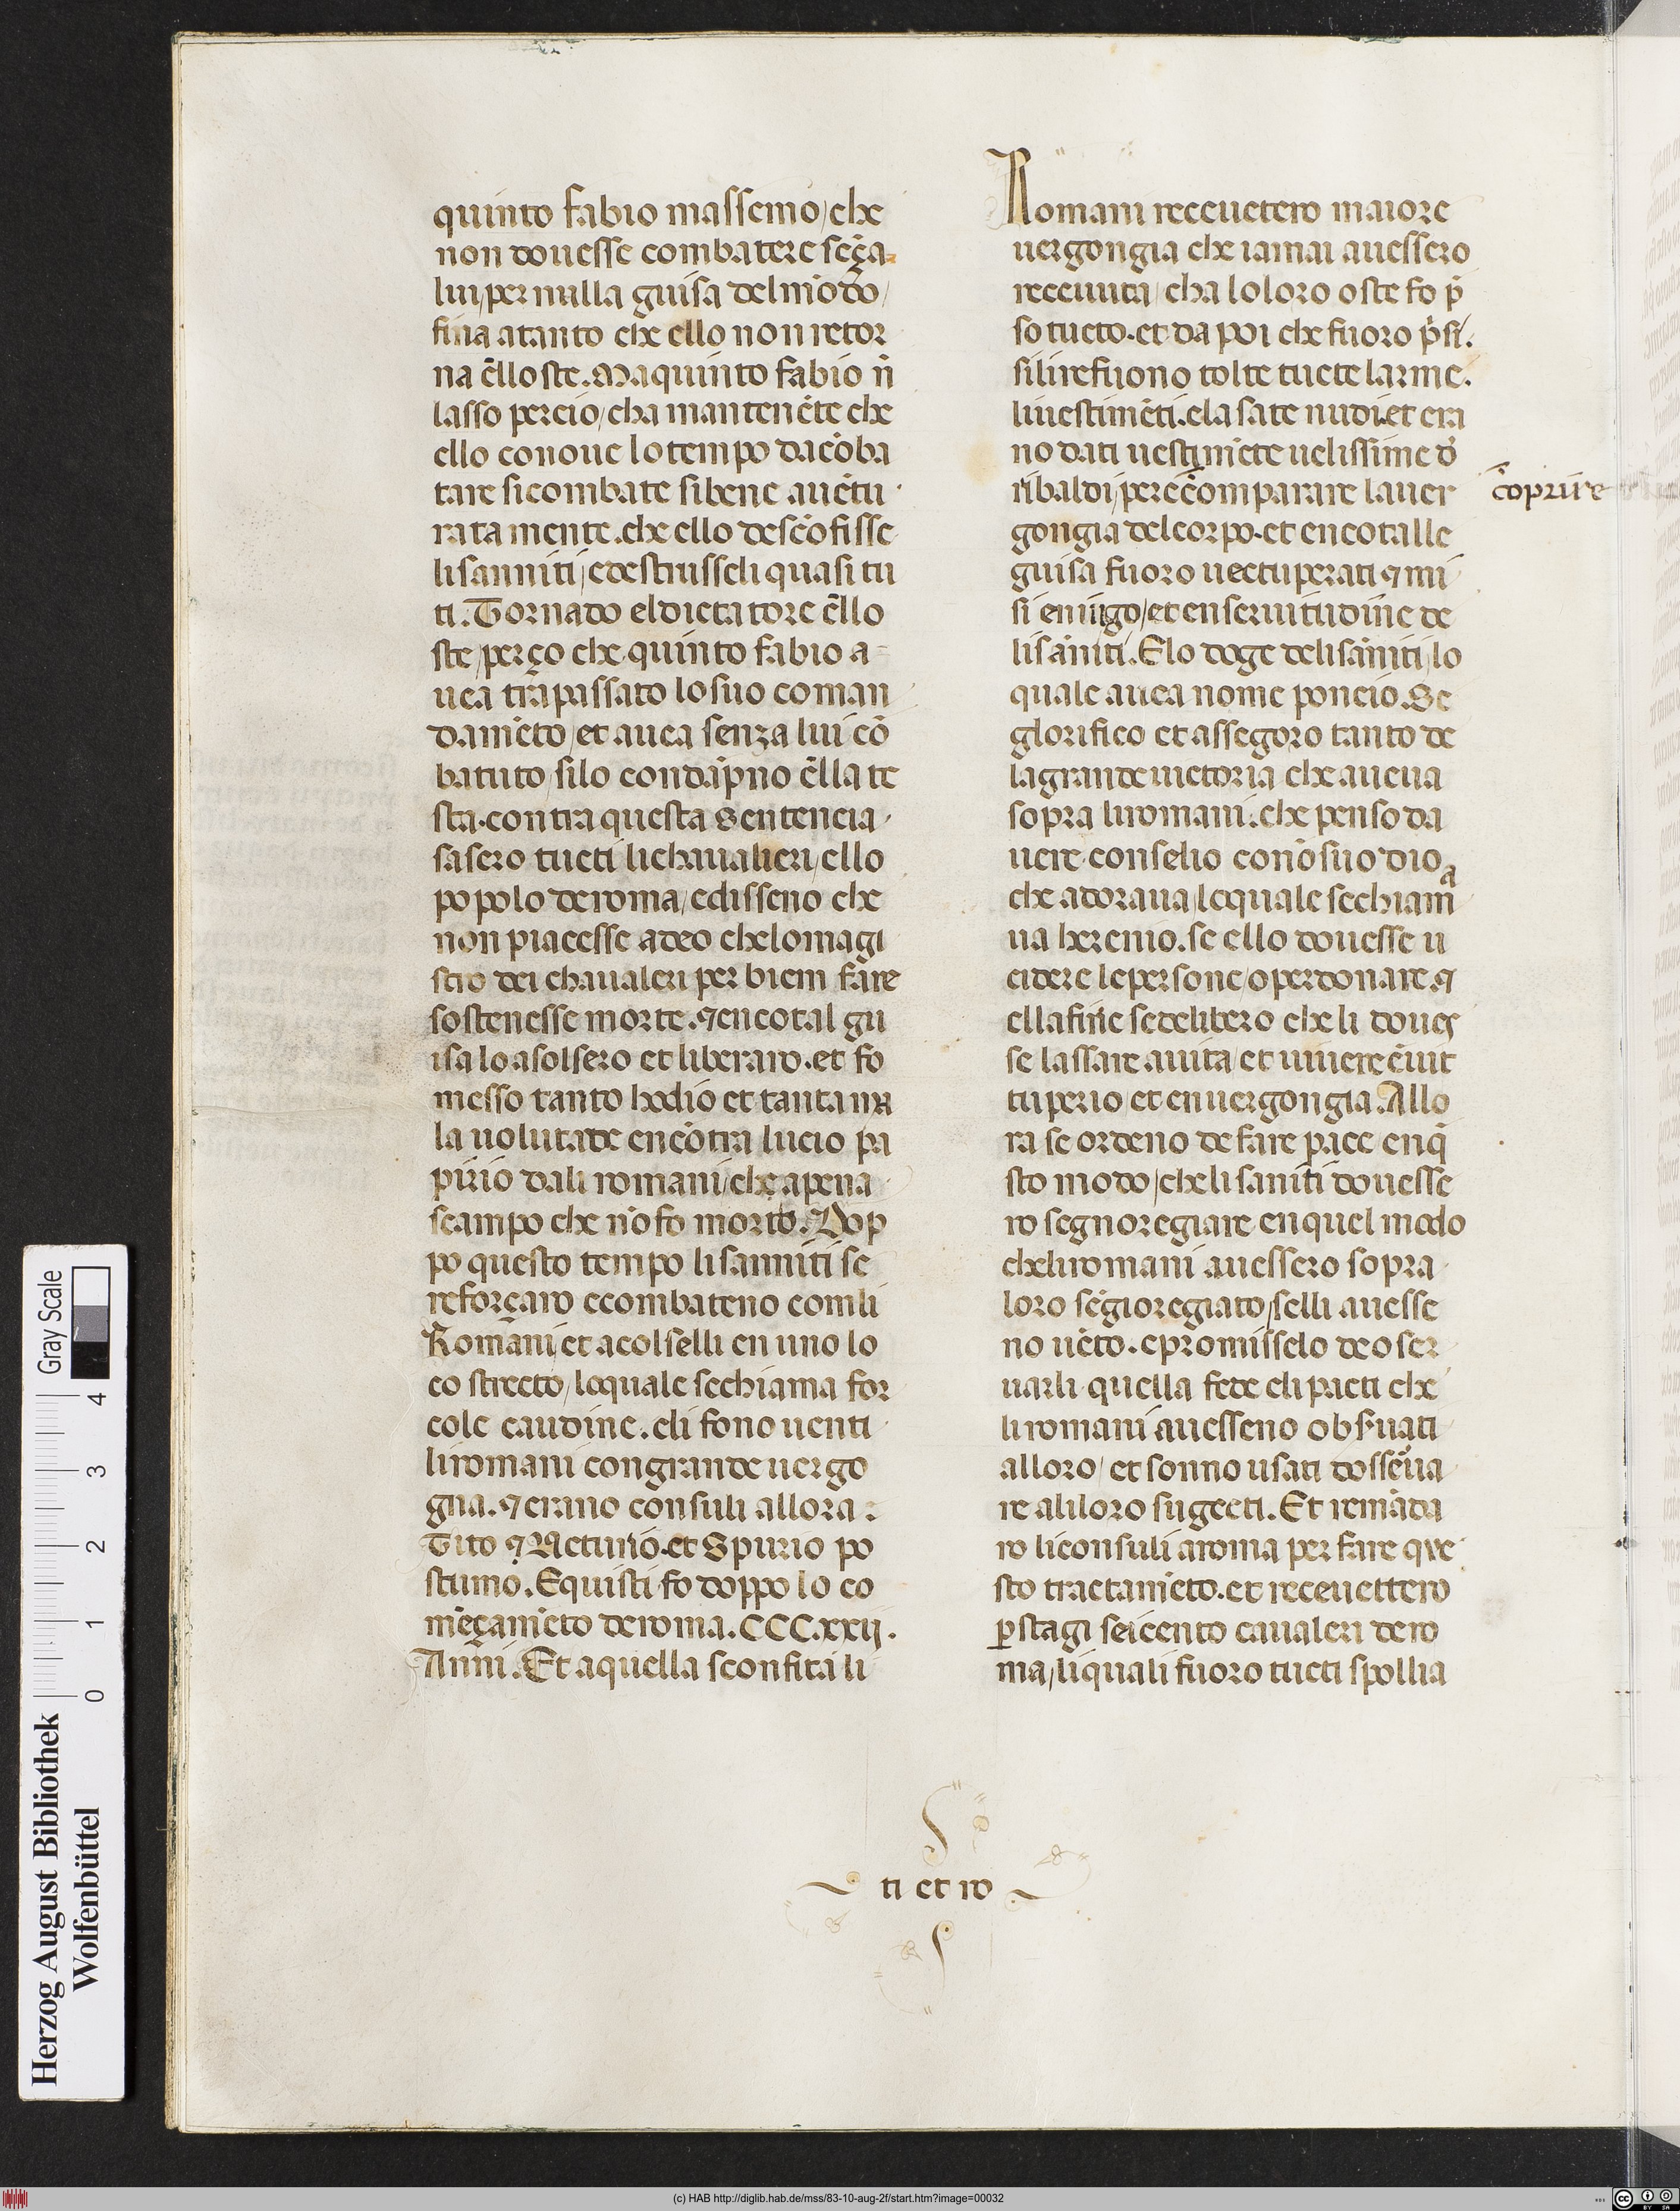 quinto fabio massemo/che
non douesse combatere sēça
lui/per nulla guisa del mōdo/
fina atanto che ello non retor
na ēllo ste. Ma quinto fabio n̄
lasso percio/cha mantenēte che
ello conoue lo tempo da cōba
tare si combate si bene auētu
rata mente. che ello descōfisse
li sanniti/e destrusseli quasi tu
ti. Tornado el dictatore ēllo
ste/perço che quinto fabio a
uea trapassato lo suo coman
damēto/et auea senza lui cō
batuto/si lo condapno ēlla te
sta. contra questa sentencia
fasero tucti li chaualieri/ello
popolo de roma/e disseno che
non piacesse a deo che lo magi
stro dei chaualeri per biem fare
sostenesse morte. ⁊ en cotal gu
isa lo asolsero et liberaro. et fo
messo tanto hodio et tanta ma
la uolūtade encōtra lucio pa
pirio dali romani/che apena
scampo che nō fo morto. Dop
po questo tempo li sanniti se
reforçaro e combateno com li
Romani/et acolselli en uno lo
co strecto/loquale se chiama for
cole caudine. eli fono uenti
li romani con grande uergo
gna. ⁊ erano consuli allora :
Tito ⁊ Veturio. et Spurio po
stumo. E quisti fo doppo lo co
mēçamēto de roma. CCC.xxij.
Anni. Et a quella sconfita li
Romani receuetero maiore
uergongia che iamai auessero
receuuta/cha lo loro oste fo p̄
so tucto. et da poi che fuoro p̄si.
si lire fuono tolte tucte larme.
li uestimēti. e lasate nudi. et era
no dati uestimēte uelissime d̄
ribaldi/per ecomparare la uer
cōprire
gongia del corpo. et en cotalle
guisa fuoro uectuperati ⁊ mi
si en iugo/et en seruitudine de
li sāniti. E lo doge deli sāniti/lo
quale auea nome poncio. Se
glorifico et assegoro tanto de
la grande uictoria che aueua
sopra li romani. che penso da
uere conselio con ō suo dio
che adoraua/loquale se chiama
ua herenio. se ello douesse u
cidere le persone/o perdonare. ⁊
ella fine se delibero che li doues
se lassare a uita/et uiuere ēuit
tuperio et en uergongia. Allo
ra se ordeno de fare pace en q̄
sto modo/che li saniti douesse
ro segnoregiare en quel modo
che li romani auessero sopra
loro sēgioregiato/selli auesse
no uēto. e promisselo de oser
uarli quella fede eli pacti che
li romani auesseno obs̄uati
alloro/et sonno usati doss̄eua
re ali loro sugecti. Et remāda
ro li consuli a roma per fare que
sto tractamēto. et receuettero
p̱ stagi seicento caualeri de ro
ma/li quali fuoro tucti spollia
ti et ro
Gray Scale
0 1 2 3 4
Herzog August Bibliothek
Wolfenbüttel
(c) HAB http://diglib.hab.de/mss/83-10-aug-2f/start.htm?image=00032